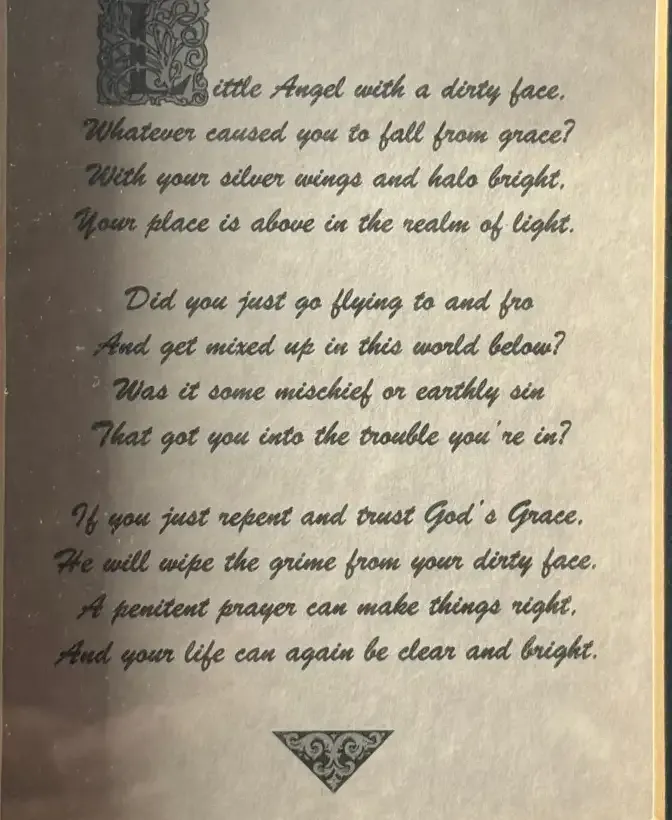 Little Angel with a dirty face,
Whatever caused you to fall from grace?
With your silver wings and halo bright,
Your place is above in the realm of light.
Did you just go flying to and fro
And get mixed up in this world below?
Was it some mischief or earthly sin
That got you into the trouble you're in?
If you just repent and trust God's Grace,
He will wipe the grime from your dirty face.
A penitent prayer can make things right,
And your life can again be clear and bright.